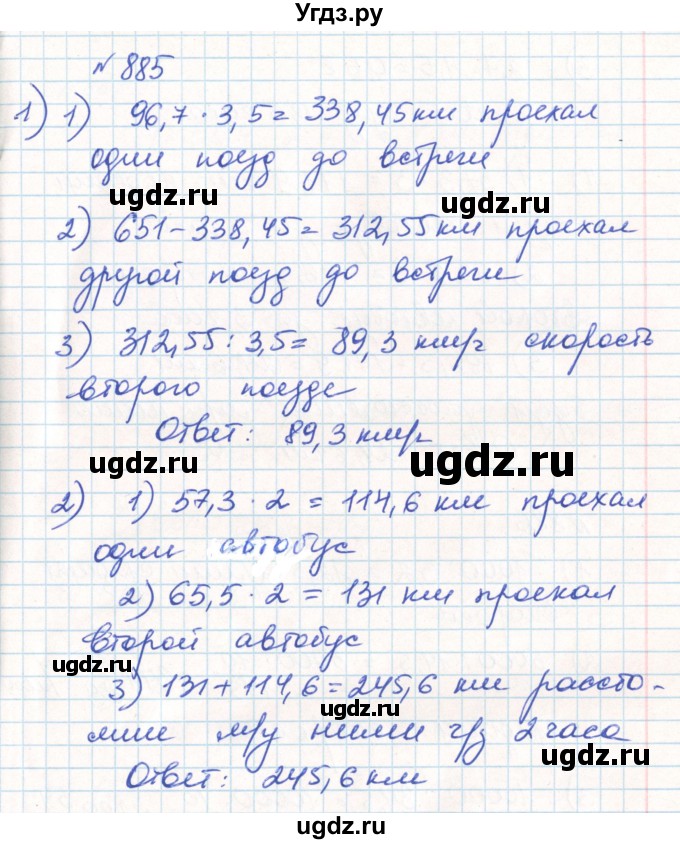 Угдз.ру
№ 885
1) 1) 96,7 · 3,5 = 338,45 км проехал
один поезд до встречи
ugdz.ru
ugdz.ru
2) 651 - 338,45 = 312,55 км проехал
другой поезд до встречи
3) 312,55 : 3,5 = 89,3 км/ч скорость
второго поезда
Ответ: 89,3 км/ч
ugdz.ru
ugdz.ru
2) 1) 57,3 · 2 = 114,6 км проехал
один автобус
2) 65,5 · 2 = 131 км проехал
второй автобус
ugdz.ru
3) 131 + 114,6 = 245,6 км рассто-
яние м/у ними ч/з 2 часа
ugdz.ru
Ответ: 245,6 км
ugdz.ru
ugdz.ru